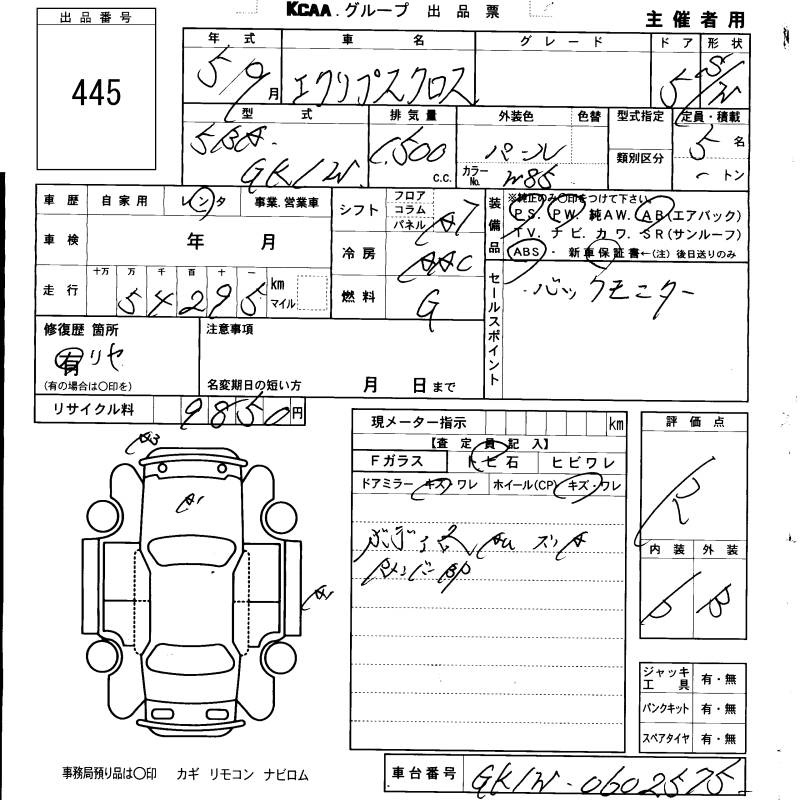 KCAA. グループ 出品票
主催者用
出品番号
445
年式 車名 グレード ドア 形状
5/9月 エクリプスクロス 5 S/W
型式 排気量 外装色 色替 型式指定 定員・積載
5BA 1,500 c.c. パール 5名
GK1W カラーNo. W85 類別区分 トン
車歴 自家用 レンタ 事業.営業車
車検 年 月
走行 十万 万 千 百 十 一
54295 km マイル
シフト フロア コラム パネル AT
冷房 AAC
燃料 G
装備品 ※純正のみ〇印をつけて下さい。
PS. PW. 純AW. AB(エアバック)
TV. ナビ. カワ. SR(サンルーフ)
ABS・ 新車保証書←(注)後日送りのみ
セールスポイント バックモニター
修復歴 箇所
有 リヤ
(有の場合は〇印を)
注意事項
名変期日の短い方 月 日まで
リサイクル料 9850円
現メーター指示 km
【査定員記入】
Fガラス トビ石 ヒビワレ
ドアミラー キズ・ワレ ホイール(CP) キズ・ワレ
評価点
R
内装 外装
B
A3
A1
A1
ジャッキ工具 有・無
パンクキット 有・無
スペアタイヤ 有・無
事務局預り品は〇印 カギ リモコン ナビロム
車台番号 GK1W-0602575